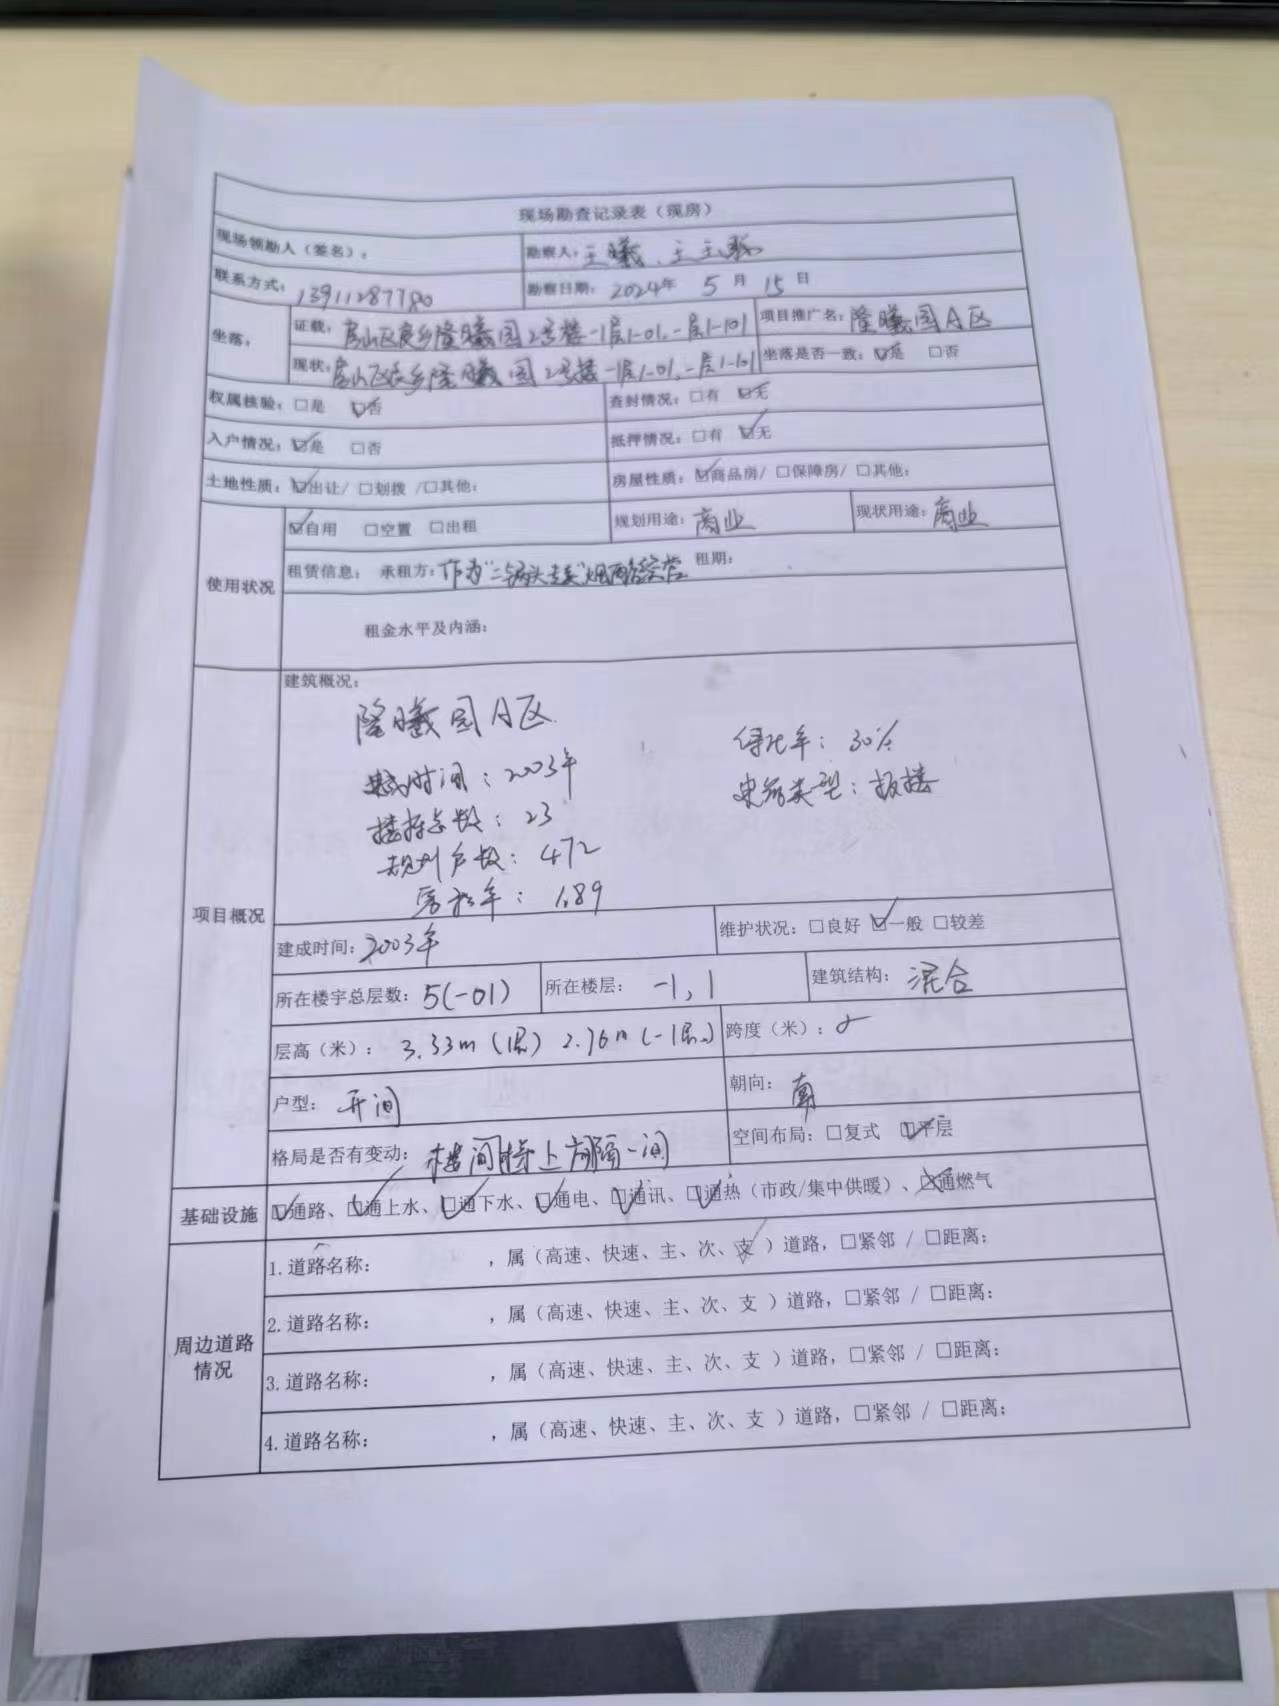 现场勘查记录表（现房）
现场领勘人（签名）： 勘察人：王曦、王
联系方式：13911287780 勘察日期：2024年 5 月 15 日
坐落： 证载：房山区良乡隆曦园2号楼-1层1-01,一层1-101 项目推广名：隆曦园A区
现状：房山区良乡隆曦园2号楼-1层1-01,一层1-101 坐落是否一致：☑是 □否
权属核验：□是 ☑否 查封情况：□有 ☑无
入户情况：☑是 □否 抵押情况：□有 ☑无
土地性质：☑出让/ □划拨 /□其他： 房屋性质：☑商品房/ □保障房/ □其他：
使用状况 ☑自用 □空置 □出租 规划用途：商业 现状用途：商业
租赁信息： 承租方：作为"二锅头专卖"烟酒 租期：
租金水平及内涵：
项目概况 建筑概况：
隆曦园A区
建成时间：2003年 绿化率：30%
楼栋总数：23 建筑类型：板楼
规划户数：472
容积率：1.89
建成时间：2003年 维护状况：□良好 ☑一般 □较差
所在楼宇总层数：5(-01) 所在楼层：-1,1 建筑结构：混合
层高（米）：3.33m（1层）2.76m（-1层） 跨度（米）：
户型：开间 朝向：南
格局是否有变动：楼间上方隔一间 空间布局：□复式 ☑平层
基础设施 ☑通路、☑通上水、☑通下水、☑通电、☑通讯、☑通热（市政/集中供暖）、☒通燃气
周边道路情况 1.道路名称： ，属（高速、快速、主、次、支 ）道路，□紧邻 / □距离：
2.道路名称： ，属（高速、快速、主、次、支 ）道路，□紧邻 / □距离：
3.道路名称： ，属（高速、快速、主、次、支 ）道路，□紧邻 / □距离：
4.道路名称： ，属（高速、快速、主、次、支 ）道路，□紧邻 / □距离：